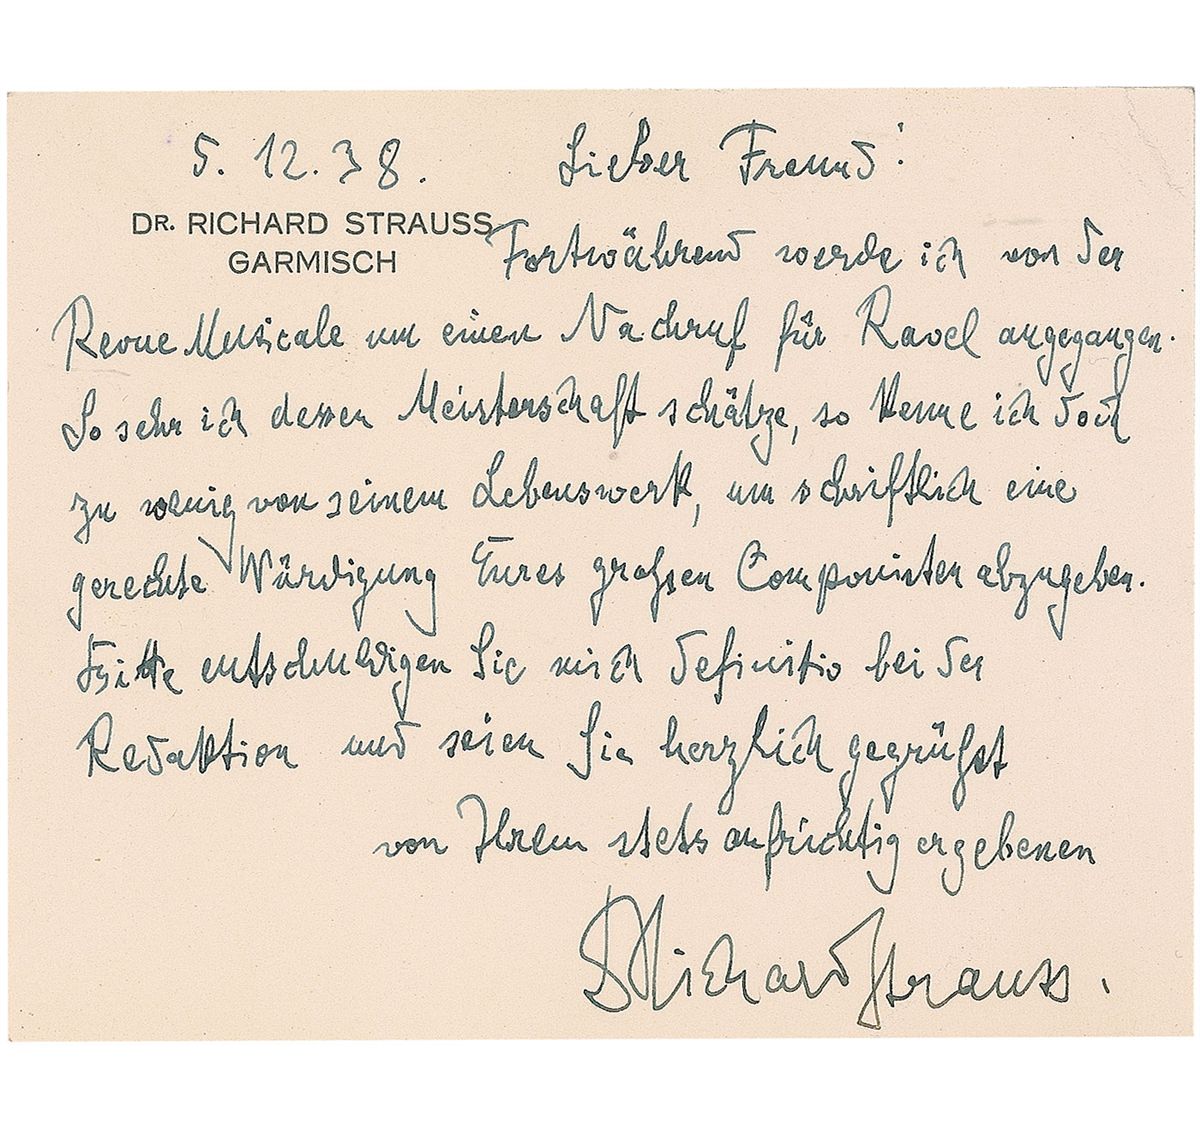 5. 12. 38.
Lieber Freund!
DR. RICHARD STRAUSS
GARMISCH
Fortwährend werde ich von der
Revue Musicale um einen Nachruf für Ravel angegangen.
So sehr ich dessen Meisterschaft schätze, so kenne ich doch
zu wenig von seinem Lebenswerk, um schriftlich eine
gerechte Würdigung Eures großen Componisten abzugeben.
Bitte entschuldigen Sie mich definitiv bei der
Redaktion und seien Sie herzlich gegrüßt
von Ihrem stets aufrichtig ergebenen
DRichard Strauss.